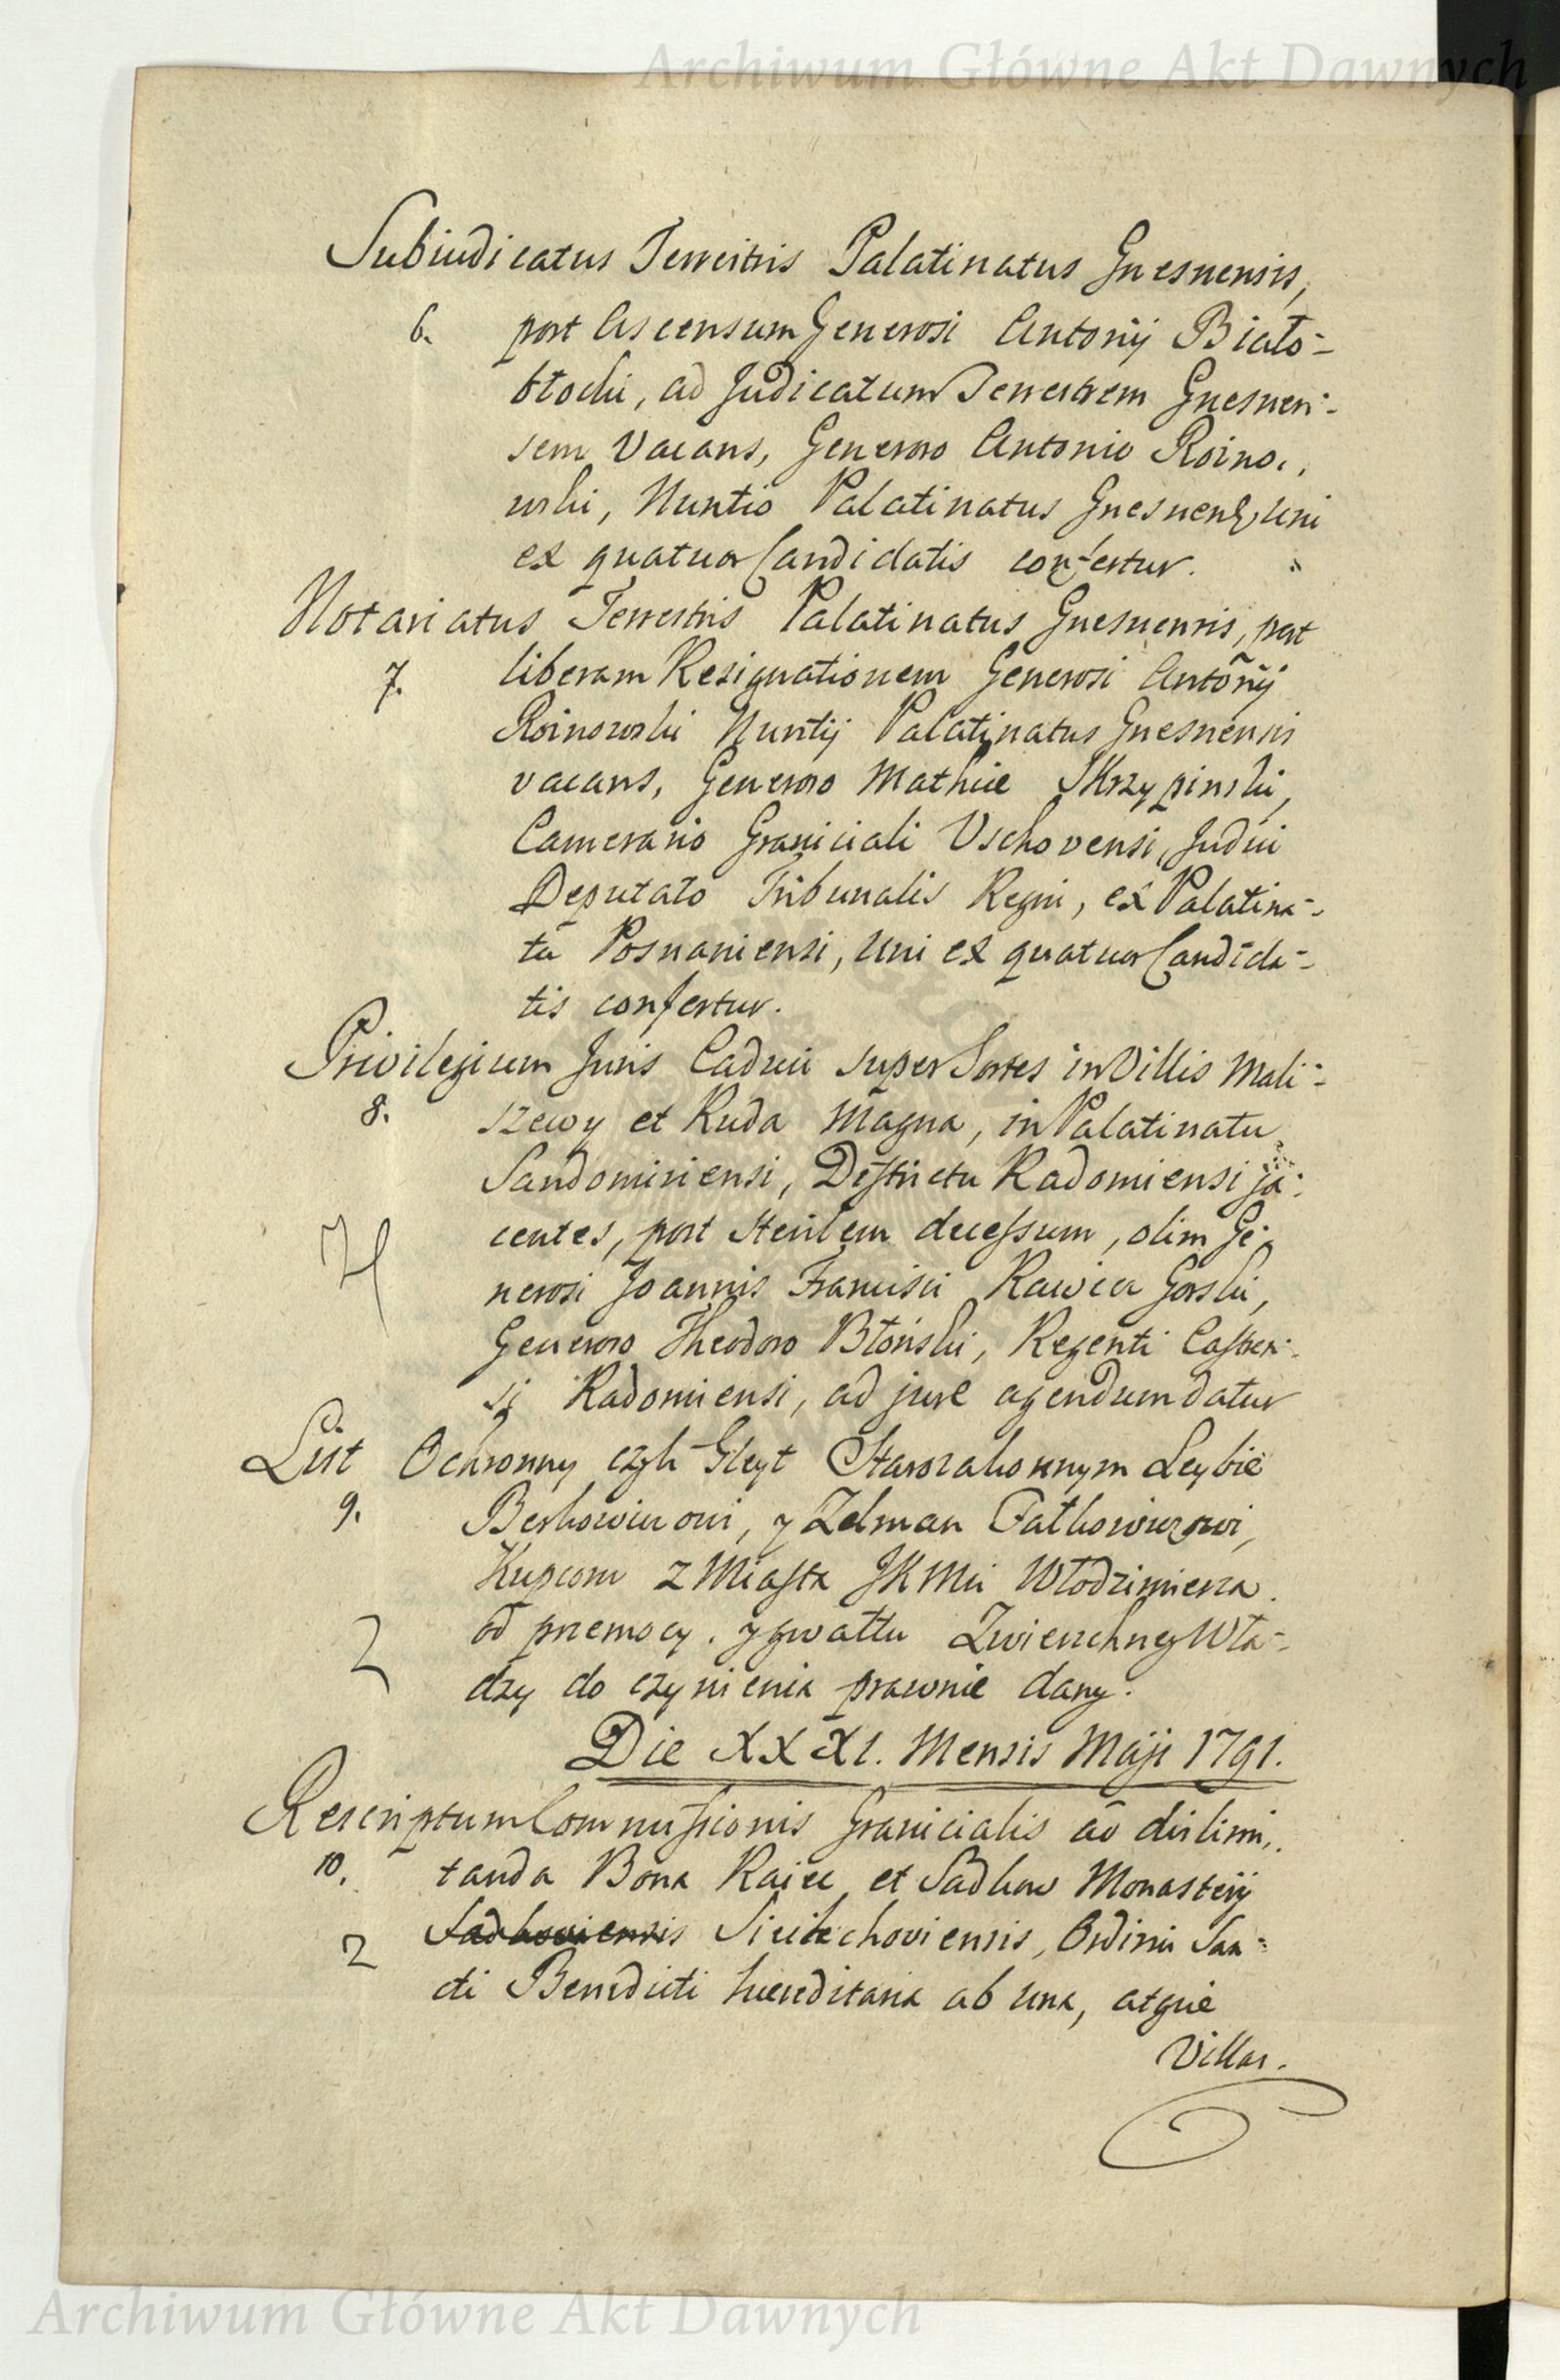 Archiwum Główne Akt Dawnych
Subiudicatus Terrestris Palatinatus Gnesnensis,
6. post Ascensum Generosi Antonij Biało-
błocki, ad Judicatum Terrestrem Gnesnen-
sem vacans, Generoso Antonio Roino-
wski, Nuntio Palatinatus Gnesnens, uni
ex quatuor Candidatis confertur.
Notariatus Terrestris Palatinatus Gnesnensis, post
7. liberam Resignationem Generosi Antonij
Roinowski Nuntij Palatinatus Gnesnensis
vacans, Generoso Mathiæ Skrzypinski,
Camerario Graniciali Vschovensi, Judici
Deputato Tribunalis Regni, ex Palatina-
tu Posnaniensi, uni ex quatuor Candida-
tis confertur.
Privilegium Juris Caduci super Sortes in Villis Mali-
8. szewy et Ruda Magna, in Palatinatu
Sandomiriensi, Districtu Radomiensi ja-
centes, post sterilem decessum, olim Ge-
nerosi Joannis Francisci Rawicz Gorski,
Generoso Theodoro Błoński, Regenti Castren-
si Radomiensi, ad jure agendum datur
List Ochronny czyli Gleyt Starozakonnym Leybie
9. Berkowiczowi, y Zelman Fatkowiczowi,
Kupcom z Miasta JKMci Włodzimierza
2 od przemocy y gwałtu Zwierzchney Wła-
dzy do czynienia prawnie dany.
Die XXXI. Mensis Maji 1791.
Rescriptum Commissionis Granicialis ad dislimi-
10. tanda Bona Raiec et Sadkow Monasterij
2 Sadkoviensis Sieciechoviensis, Ordinis San-
cti Benedicti hæreditaria ab una, atque
Villas.
Archiwum Główne Akt Dawnych